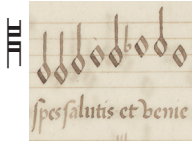 spes salutis et venie